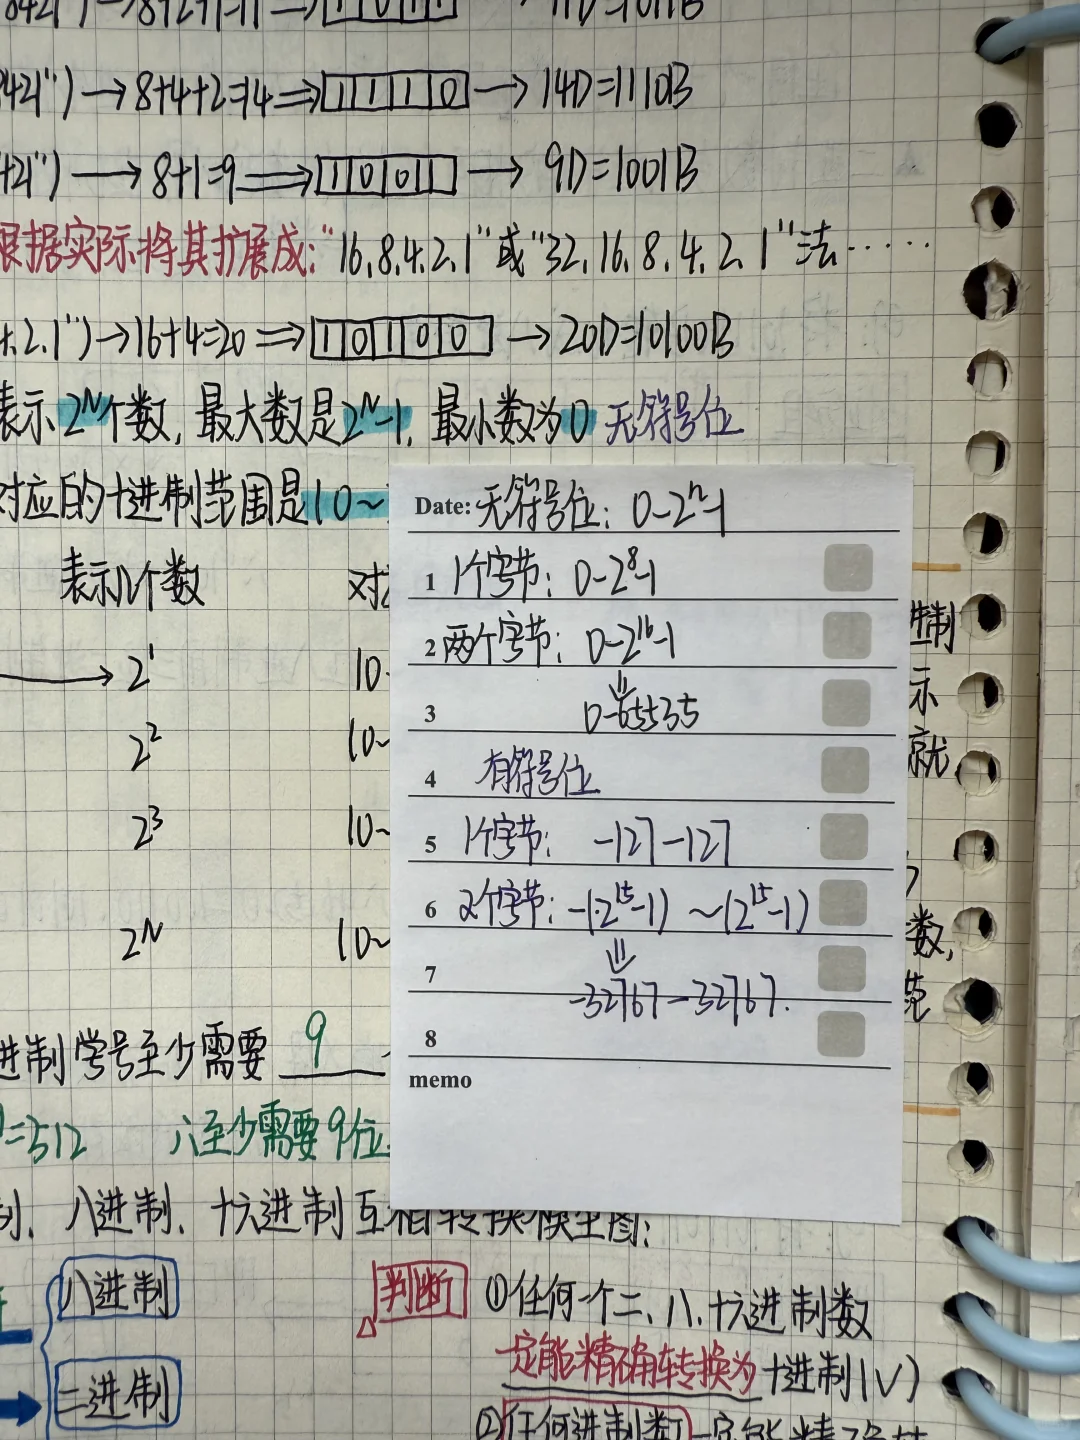 8421")→8+2+1=11⇒1011→11D=1011B
421")→8+4+2=14⇒1110→14D=1110B
421")→8+1=9⇒1001→9D=1001B
根据实际将其扩展成:"16.8.4.2.1"或"32.16.8.4.2.1"法……
4.2.1")→16+4=20⇒10100→20D=10100B
表示2^N个数,最大数是2^N-1,最小数为0 无符号位
对应的十进制范围是(0~
表示几个数 对
→2^1 (0
2^2 (0~
2^3 (0~
2^N (0~
Date: 无符号位: 0-2^n-1
1 1个字节: 0-2^8-1
2 两个字节: 0-2^16-1
⇓
3 0-65535
4 有符号位
5 1个字节: -127-127
6 2个字节: -(2^15-1) ~(2^15-1)
⇓
7 -32767-32767.
8
memo
进制
示
就
数,
范
进制学号至少需要 9
=512 ∴至少需要9位.
制、八进制、十六进制互相转换模型图:
八进制
二进制
判断 ①任何一个二、八、十六进制数
一定能精确转换为十进制(√)
②任何进制数